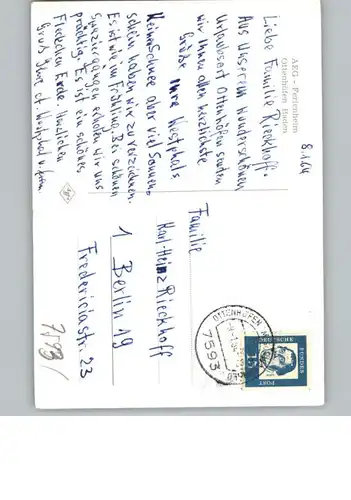 AEG - Ferienheim
Ottenhöfen Baden
8.1.64
Liebe Familie Rieckhoff!
Aus unserem wunderschönen
Urlaubsort Ottenhöfen senden
wir Ihnen allen herzlichste
Grüße Ihre Westphals.
Keinen Schnee aber viel Sonnen-
schein haben wir zu verzeichnen.
Es ist wie im Frühling. Bei schönen
Spaziergängen erholen wir uns
prächtig. Es ist ein schönes
Fleckchen Erde. Herzlichen
Gruß Ihre
Familie
Karl-Heinz Rieckhoff
1 Berlin 19
Fredericiastr. 23
7593/
OTTENHÖFEN
7593
DEUTSCHE
BUNDESPOST
15